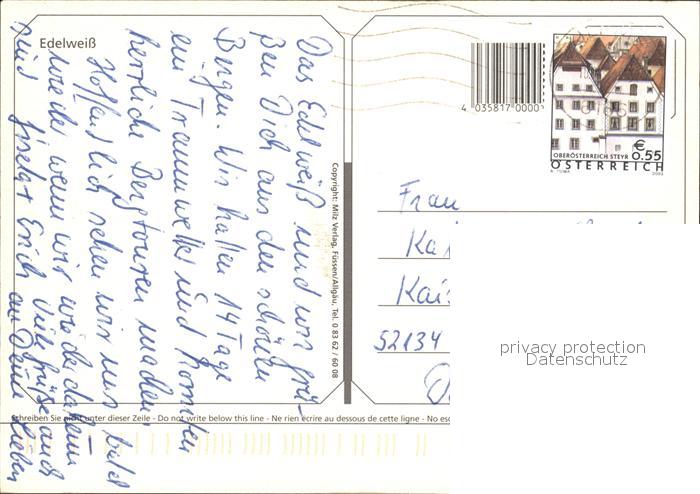 Edelweiß
Das Edelweiß und wir grü-
ßen Dich aus den schönen
Bergen. Wir hatten 14 Tage
ein Traumwetter und konnten
herrliche Bergtouren machen.
Hoffentlich sehen wir uns bald
wieder wenn wir wieder daheim
sind. Viele Grüße auch
an Deine Lieben
Erich
Copyright: Milz Verlag, Füssen/Allgäu, Tel. 0 83 62 / 60 08
4 035817 0000
€
0.55
OBERÖSTERREICH STEYR
ÖSTERREICH
2003
Frau
Ka
Kais
52134
privacy protection
Datenschutz
Schreiben Sie nicht unter dieser Zeile - Do not write below this line - Ne rien écrire au dessous de cette ligne - No esc